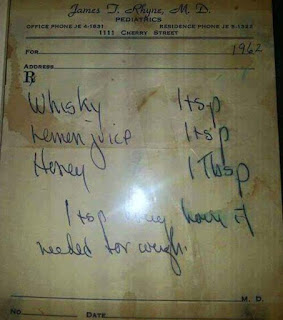 James T. Rhyne, M. D.
PEDIATRICS
OFFICE PHONE JE 4-1831 RESIDENCE PHONE JE
1111 CHERRY STREET
FOR 1962
ADDRESS
℞
Whisky 1 tsp
Lemon juice 1 tsp
Honey 1 Tbsp
1 tsp every hour if
needed for cough.
M. D.
No DATE